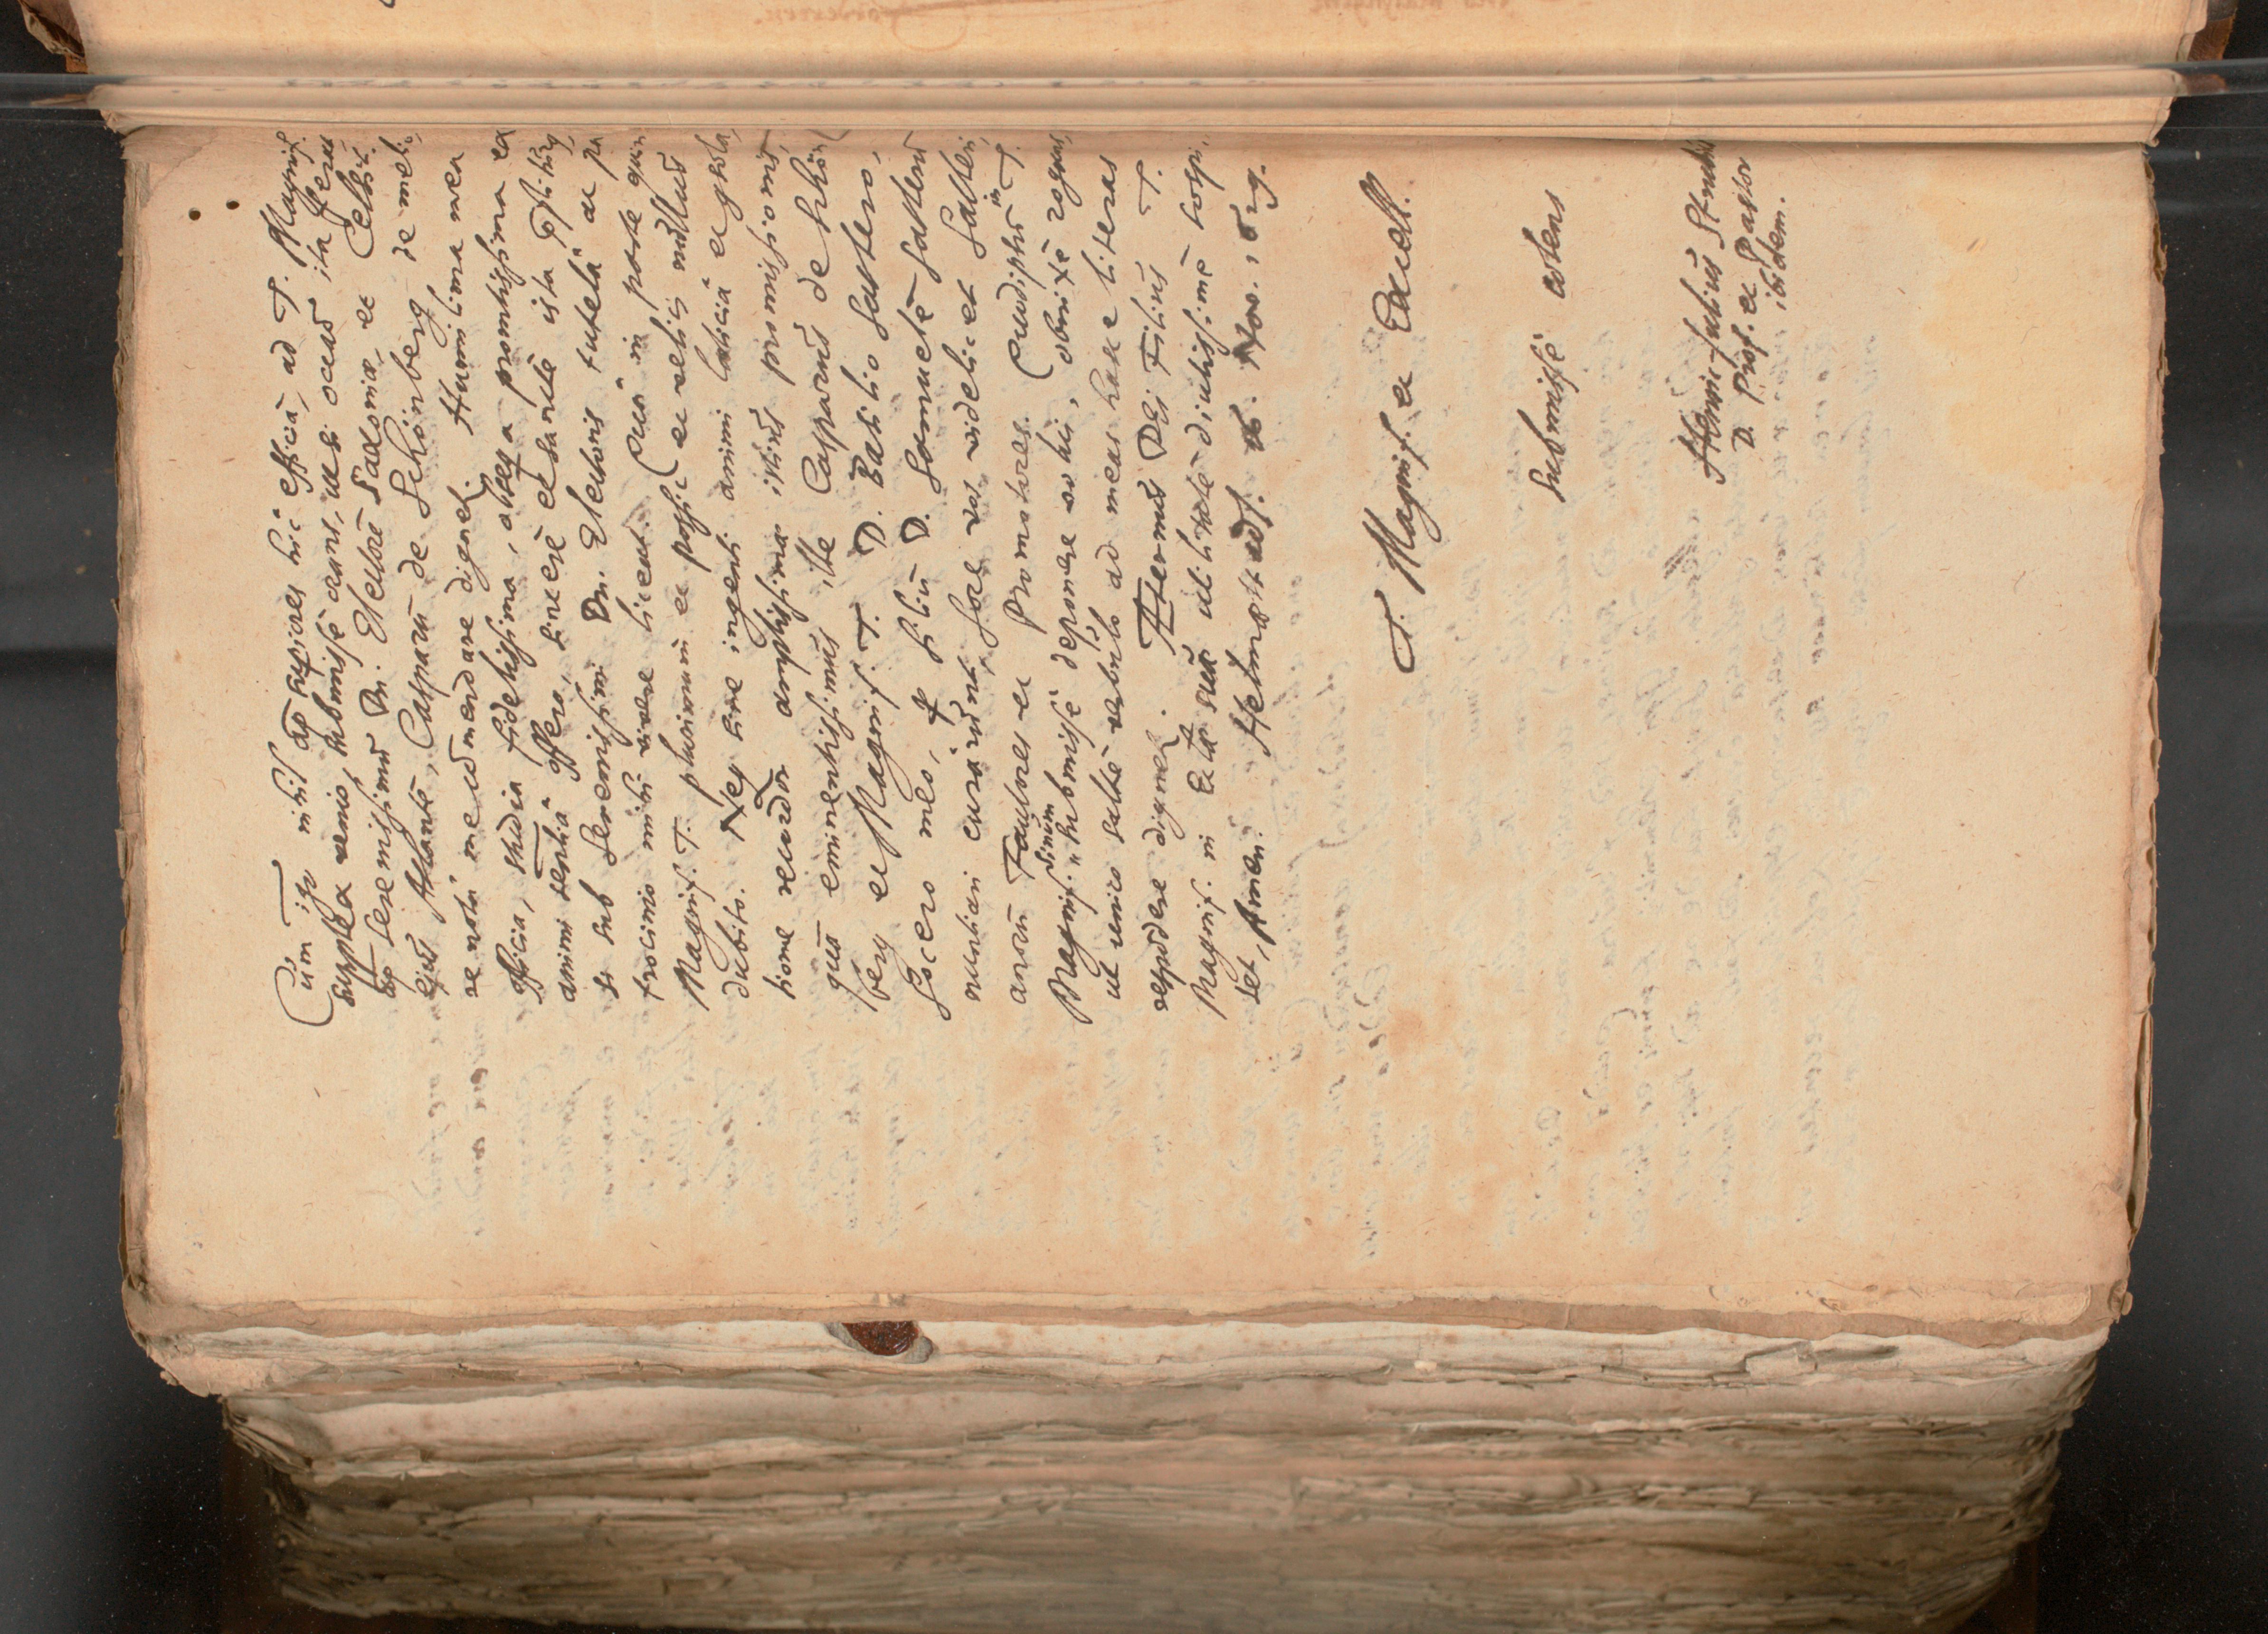 Cùm itq nihil ap superiores hic efficiā, ad T. Magnif.
supplex venio, submissè orans, ut si occasio ita ferat
ap Serenissimū Dn. Electorē Saxoniæ, et Celsit.
ejus Atlantē, Casparū de Schönberg de meli,
re notā me cōmendare dignet. Humilima mea
officia, studia fidelissima, obseqa promtissima ea
animi sentiā offero, sincerè et sanctè ista
si sub Serenissimi Dn. Electoris tutelā ac pa
trocinio mihi vivere liceat. Quā in parte quin
Magnif. T. plurimum et possit et velit nullus
dubito. Neq sine ingenti animi lætitiā et
tione recordor amplissimæ istius promissionis,
quā eminentissimus ille Casparus de Schön
berg et Magnif. T. D. Basilio Sattlero,
Socero meo, filiū D. Samuelē Sattlerū
nuntiari curārunt, fore vos videlicet Sattleri,
anorū Fautores et Promotores. Crudiptū in T.
Magnif. sinum submissè deponere volui, obnixè rogans,
ut unico saltē verbulo ad meas hasce literas
respōdere dignet. Æternus Dei Filius T.
Magnif. in Ecclæ suæ utilitatē diutissimè sospi,
tet, Amen. Helmæstadj. d. Nov. 1
T. Magnif. et Excell.
submissè colens
Henric Julius Strube
D. Prof. et Pastor
ibidem.